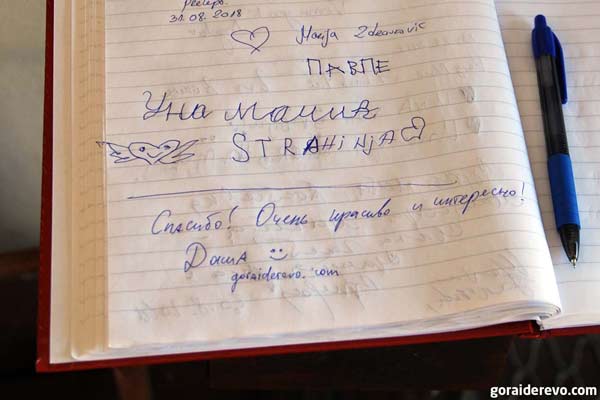 31.08.2018
Marija Zdravković
ПАВЛЕ
Уна
STRAHINJA
Спасибо! Очень красиво и интересно!
Даша
goraiderevo.com
goraiderevo.com